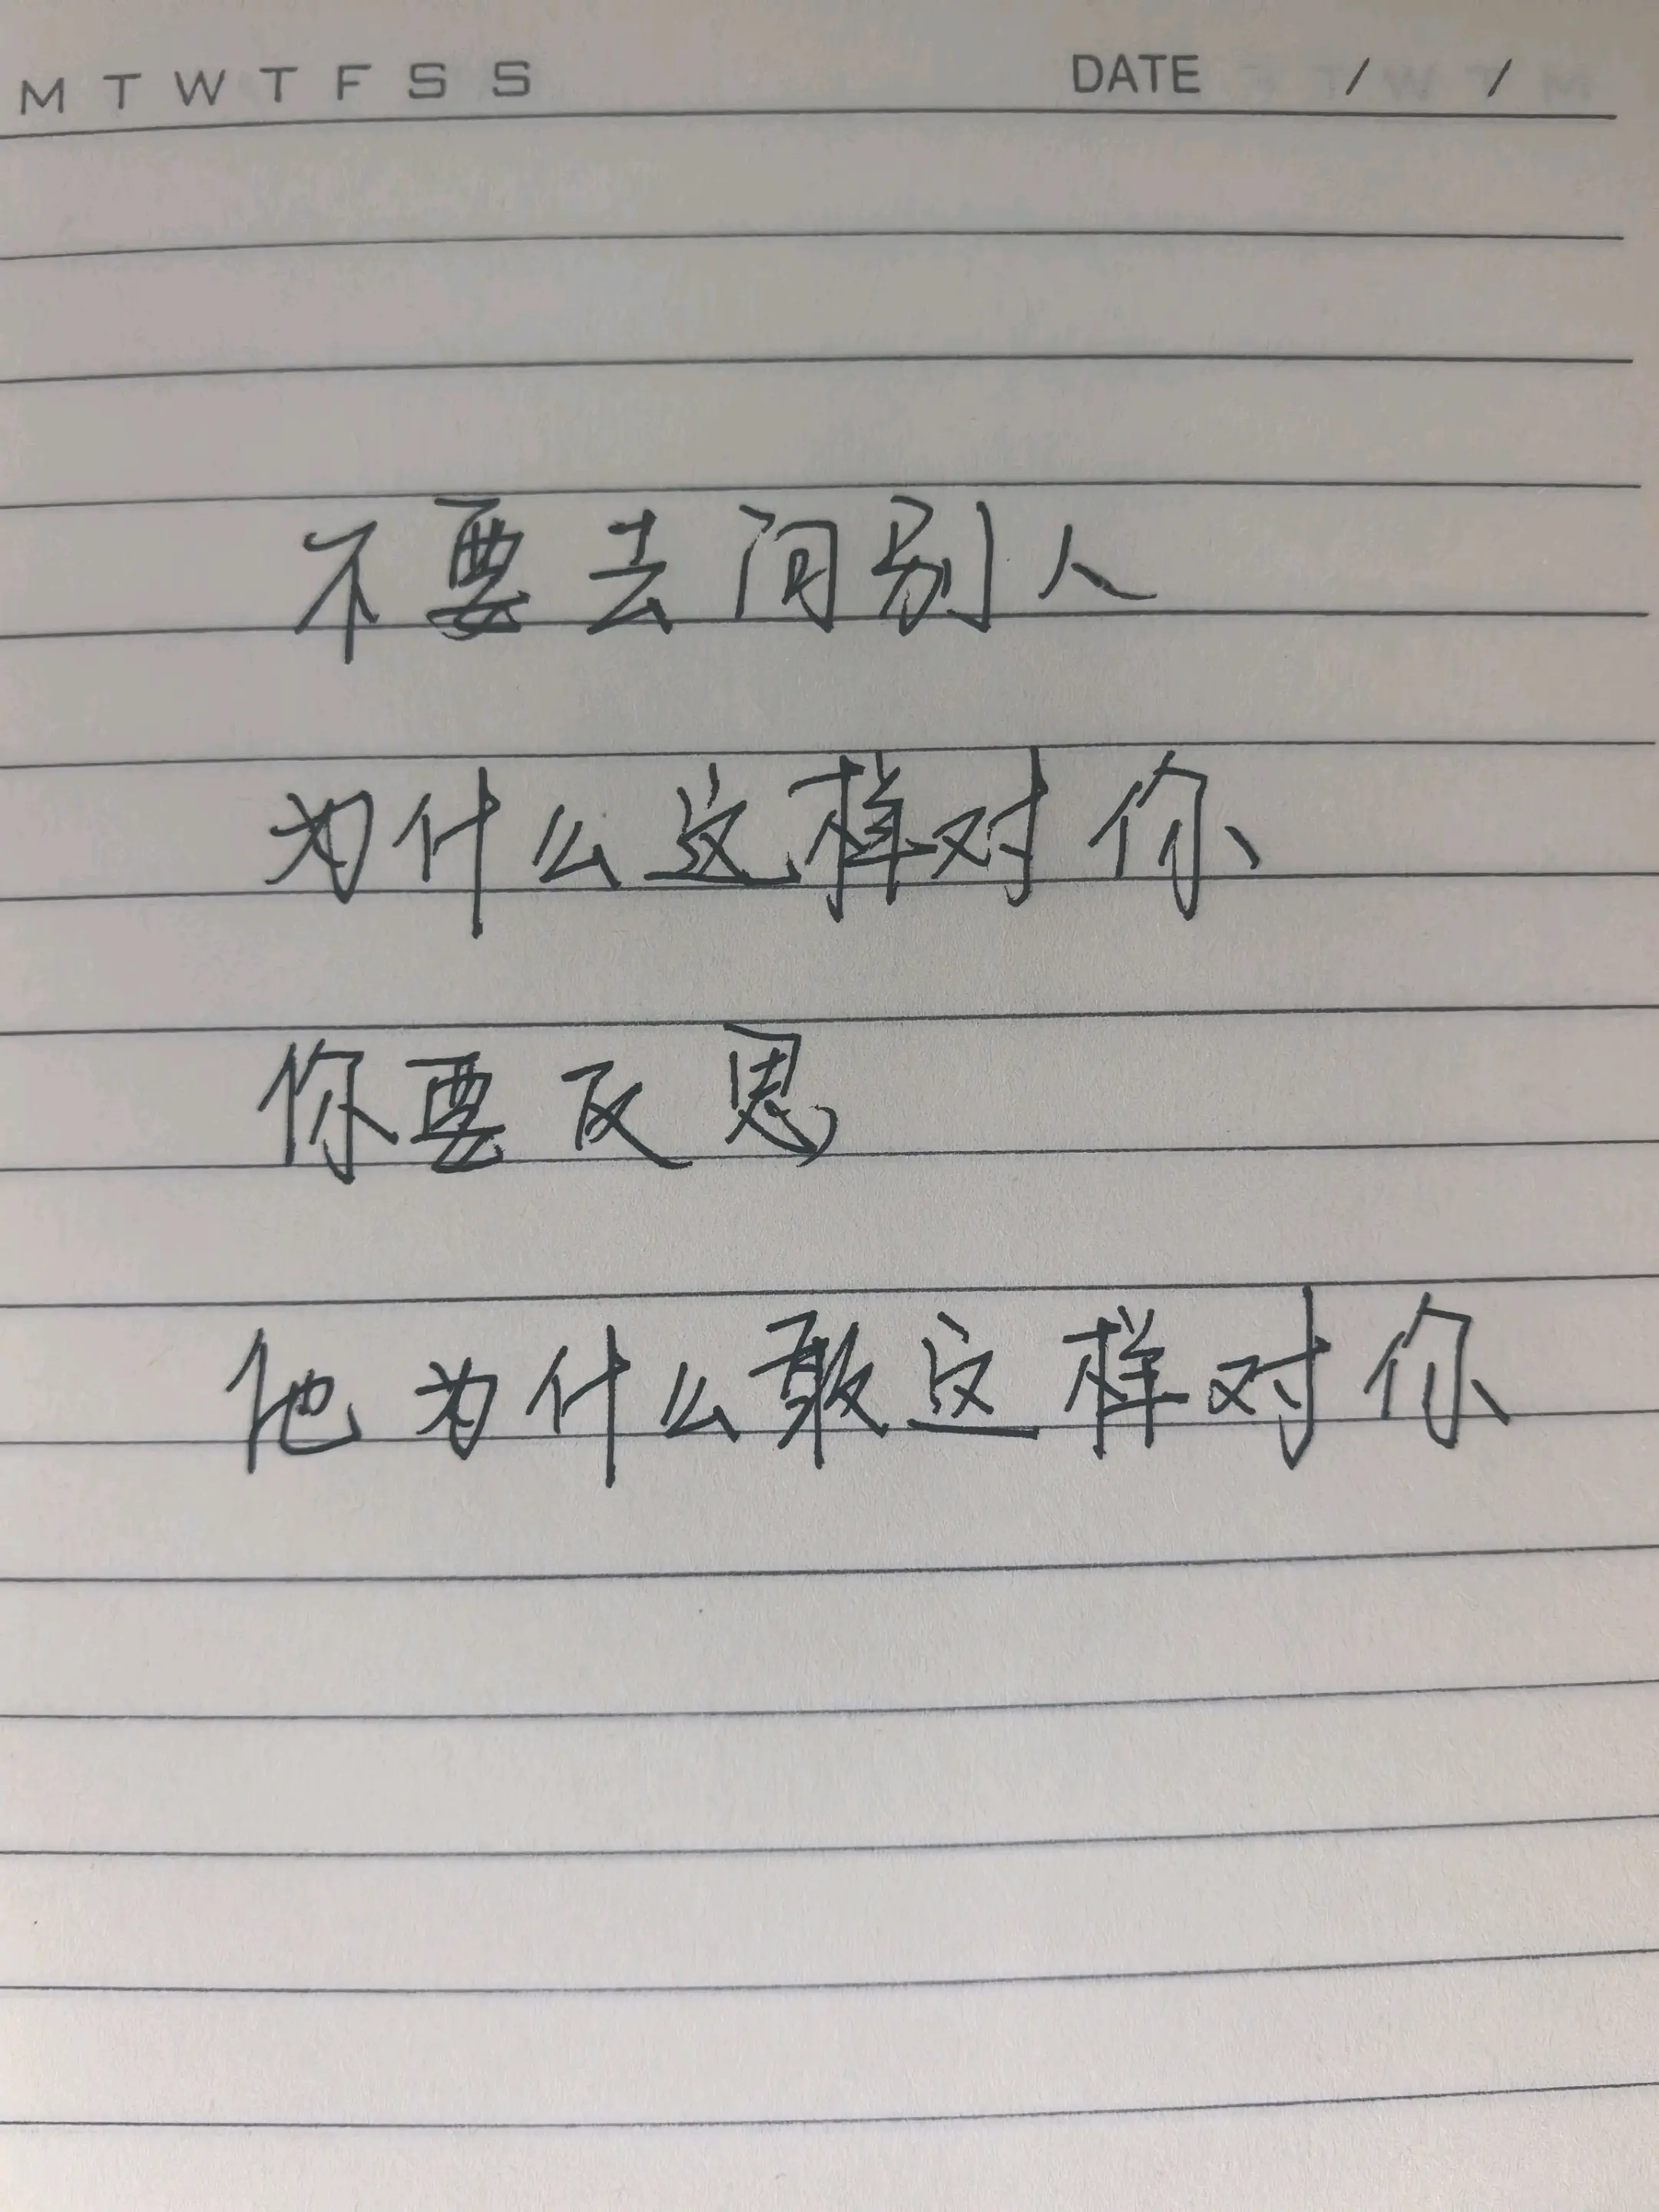 M T W T F S S DATE / /
不要去问别人
为什么这样对你
你要反思
他为什么敢这样对你